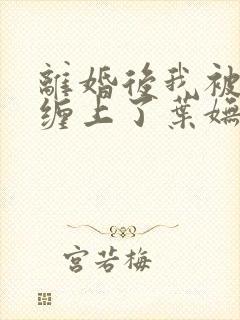 離婚後我被
缠上了葉嫵
宮若梅